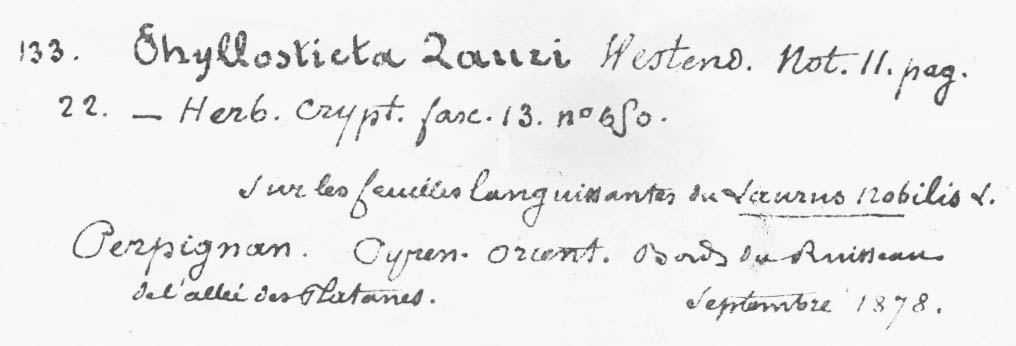 133. Phyllosticta Lauri Westend. Not. 11. pag.
22. — Herb. Crypt. fasc. 13. no 650.
Sur les feuilles languissantes du Laurus nobilis L.
Perpignan. Pyren. Orient. Bords du Ruisseau
de l'allée des Platanes. Septembre 1878.